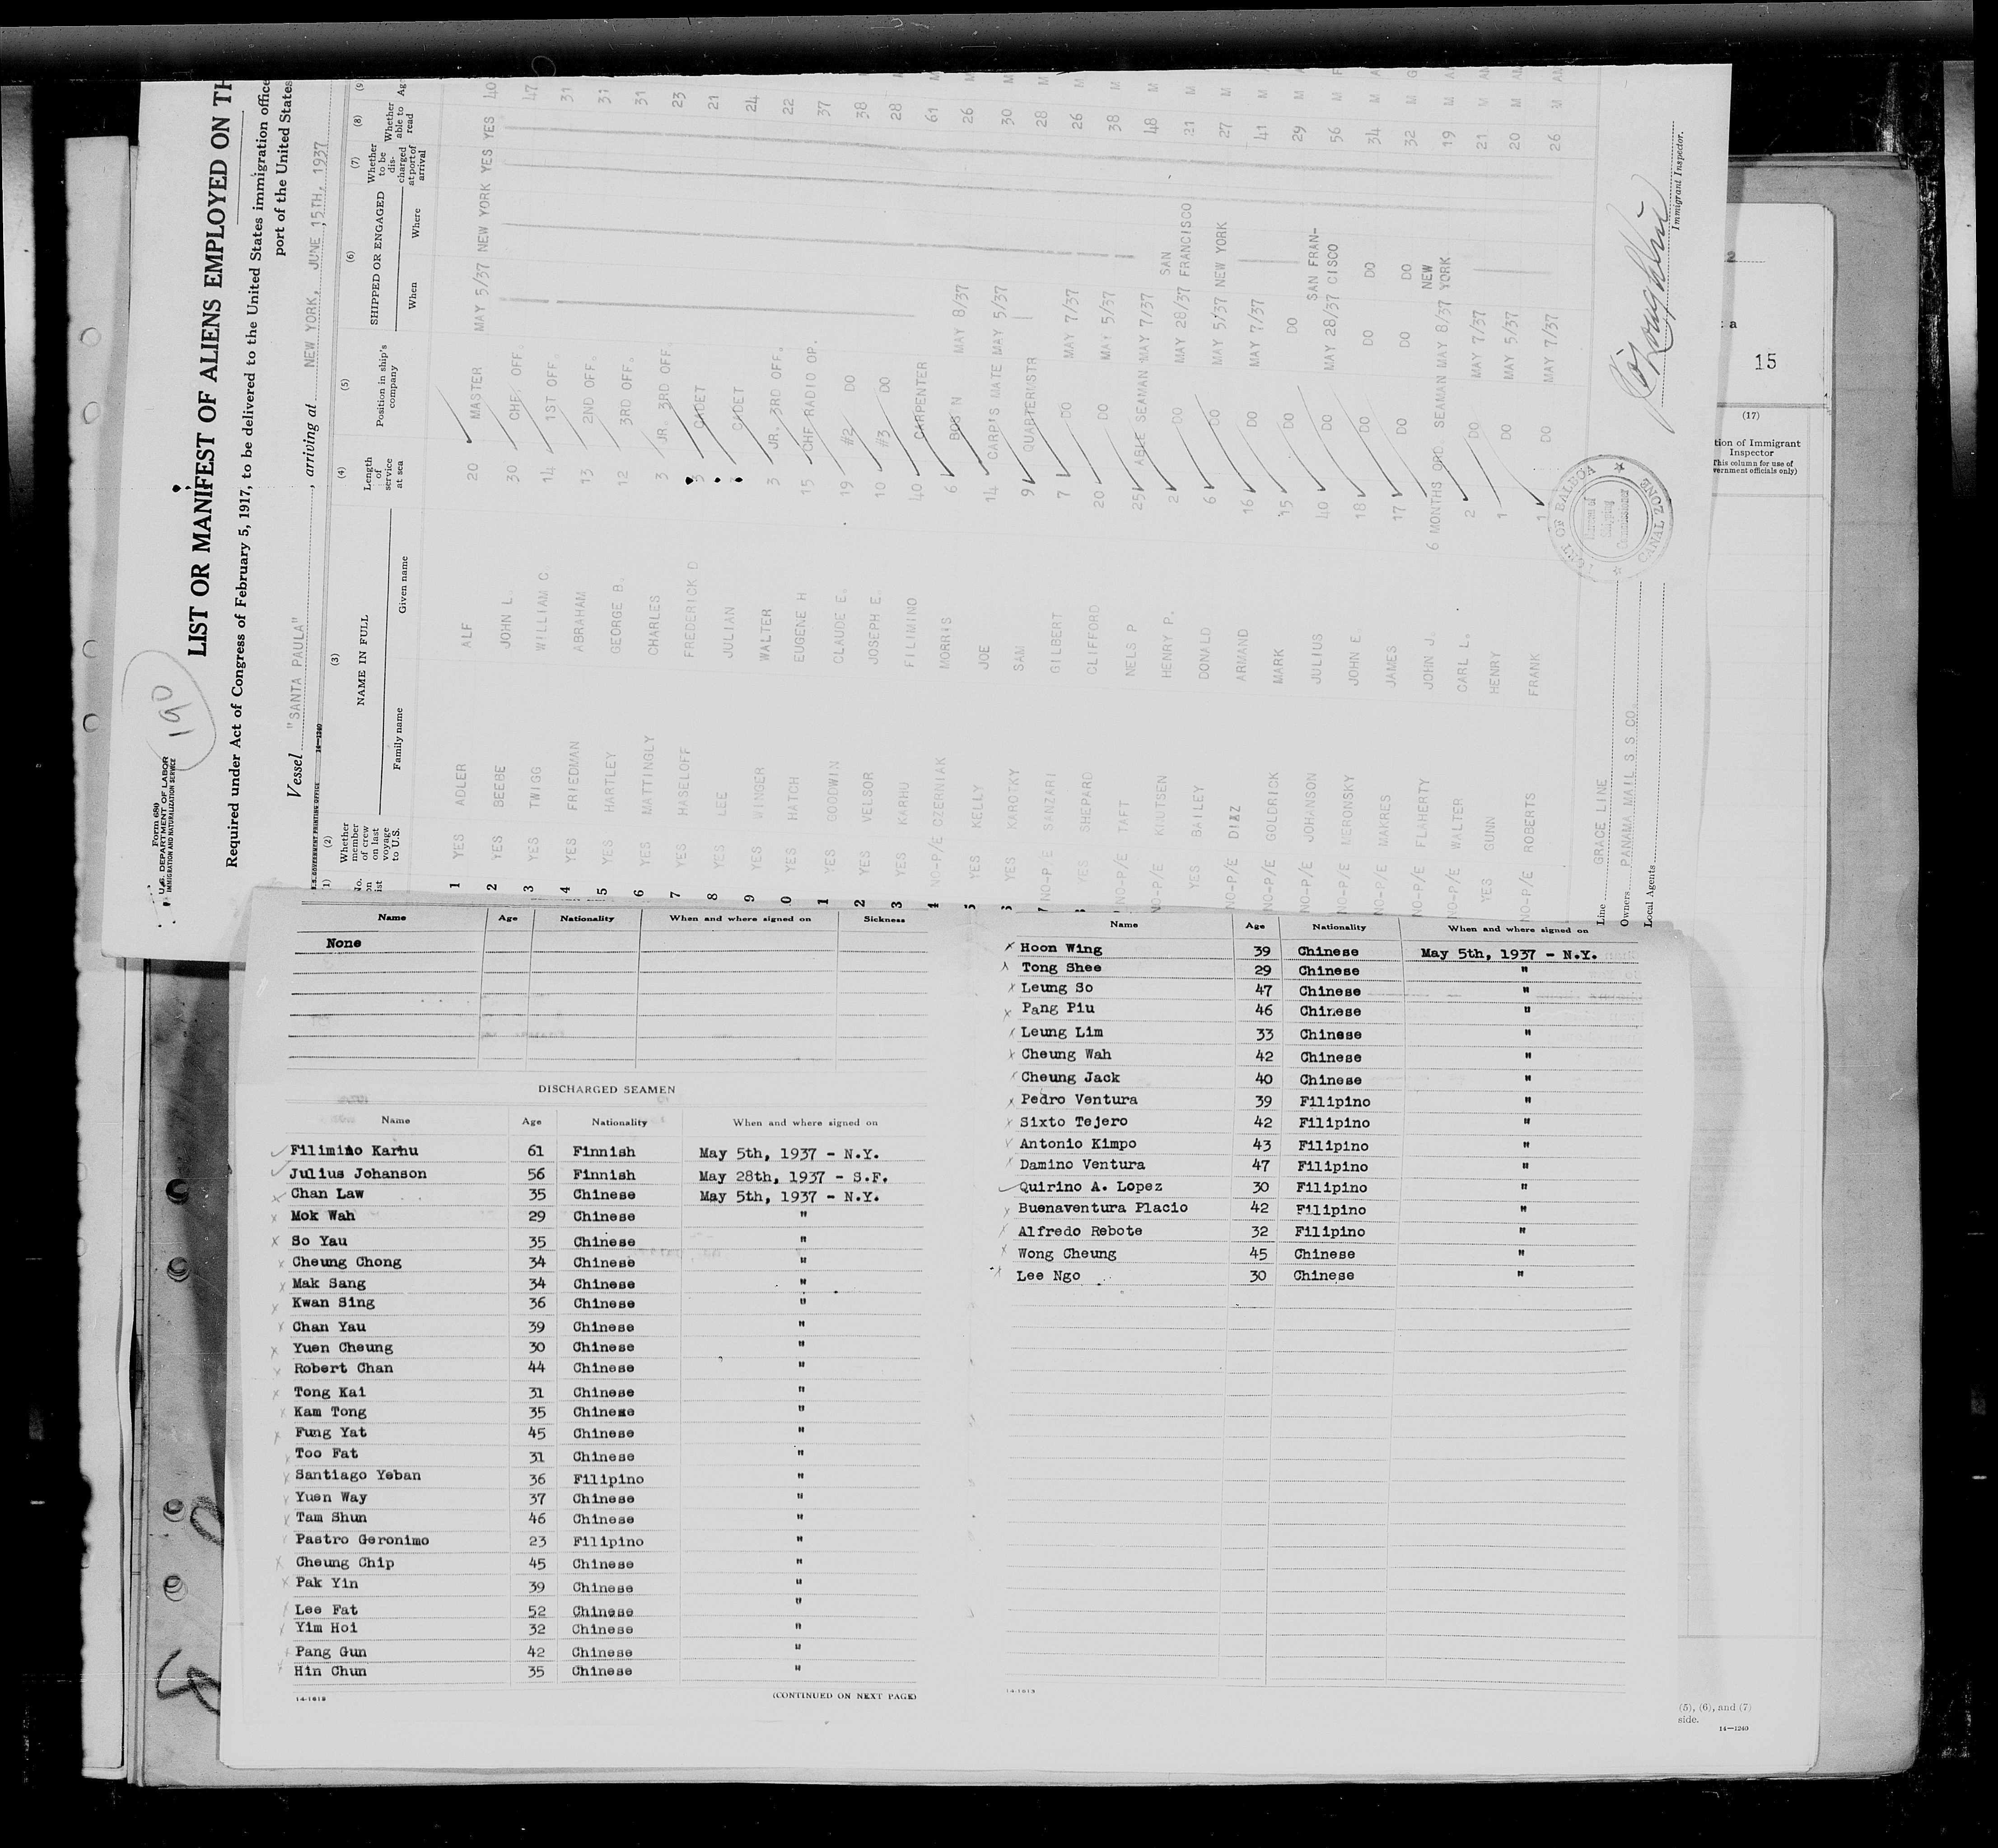 Form 680
U.S. DEPARTMENT OF LABOR
IMMIGRATION AND NATURALIZATION SERVICE
190
LIST OR MANIFEST OF ALIENS EMPLOYED ON TH
Required under Act of Congress of February 5, 1917, to be delivered to the United States immigration office
port of the United States
Vessel "SANTA PAULA", arriving at NEW YORK, JUNE 15TH, 1937
U.S. GOVERNMENT PRINTING OFFICE 14—1240
(1) (2) (3) (4) (5) (6) (7) (8) (9
No. on list Whether member of crew on last voyage to U.S. NAME IN FULL Family name Given name Length of service at sea Position in ship's company SHIPPED OR ENGAGED When Where Whether to be discharged at port of arrival Whether able to read Ag
1 YES ADLER ALF 20 MASTER MAY 5/37 NEW YORK YES YES 40
2 YES BEEBE JOHN L. 30 CHF. OFF. 47
3 YES TWIGG WILLIAM C 14 1ST OFF 31
4 YES FRIEDMAN ABRAHAM 13 2ND OFF. 31
5 YES HARTLEY GEORGE B. 12 3RD OFF. 31
6 YES MATTINGLY CHARLES 3 JR. 3RD OFF. 23
7 YES HASELOFF FREDERICK D CADET 21
8 YES LEE JULIAN CADET 24
9 YES WINGER WALTER 3 JR. 3RD OFF. 22
0 YES HATCH EUGENE H 15 CHF RADIO OP. 37
1 YES GOODWIN CLAUDE E. 19 #2 DO 38
2 YES VELSOR JOSEPH E. 10 #3 DO 28
3 YES KARHU FILIMINO 40 CARPENTER 61 M
4 NO-P/E CZERNIAK MORRIS 6 BOS'N MAY 8/37 26 M
5 YES KELLY JOE 14 CARP'S MATE MAY 5/37 30 M
YES KAROTKY SAM 9 QUARTERMSTR 28 M
NO-P/E SANZARI GILBERT 7 DO MAY 7/37 26 M
YES SHEPARD CLIFFORD 20 DO MAY 5/37 38 M
NO-P/E TAFT NELS P 25 ABLE SEAMAN MAY 7/37 48 M
NO-P/E KNUTSEN HENRY P. 2 DO MAY 28/37 SAN FRANCISCO 21 M
YES BAILEY DONALD 6 DO MAY 5/37 NEW YORK 27 M
NO-P/E DIAZ ARMAND 16 DO MAY 7/37 41 M
NO-P/E GOLDRICK MARK 15 DO DO 29 M
NO-P/E JOHANSON JULIUS 40 DO MAY 28/37 SAN FRAN-CISCO 56 M F
NO-P/E MERONSKY JOHN E. 18 DO DO DO 34 M A
NO-P/E MAKRES JAMES 17 DO DO DO 32 M G
NO-P/E FLAHERTY JOHN J. 6 MONTHS ORD SEAMAN MAY 8/37 NEW YORK 19 M A
NO-P/E WALTER CARL L. 2 DO MAY 7/37 21 M AM
YES GUNN HENRY 1 DO MAY 5/37 20 M AM
NO-P/E ROBERTS FRANK 1 DO MAY 7/37 26 M AM
Line GRACE LINE
Owners PANAMA MAIL S S CO.
Local Agents
Immigrant Inspector.
OF BALBOA
Shipping Commissioner
CANAL ZONE
a
15
(17)
tion of Immigrant
Inspector
This column for use of
vernment officials only)
Name Age Nationality When and where signed on Sickness
None
DISCHARGED SEAMEN
Name Age Nationality When and where signed on
Filimino Karhu 61 Finnish May 5th, 1937 - N.Y.
Julius Johanson 56 Finnish May 28th, 1937 - S.F.
Chan Law 35 Chinese May 5th, 1937 - N.Y.
Mok Wah 29 Chinese "
So Yau 35 Chinese "
Cheung Chong 34 Chinese "
Mak Sang 34 Chinese "
Kwan Sing 36 Chinese "
Chan Yau 39 Chinese "
Yuen Cheung 30 Chinese "
Robert Chan 44 Chinese "
Tong Kai 31 Chinese "
Kam Tong 35 Chinese "
Fung Yat 45 Chinese "
Too Fat 31 Chinese "
Santiago Yeban 36 Filipino "
Yuen Way 37 Chinese "
Tam Shun 46 Chinese "
Pastro Geronimo 23 Filipino "
Cheung Chip 45 Chinese "
Pak Yin 39 Chinese "
Lee Fat 52 Chinese "
Yim Hoi 32 Chinese "
Pang Gun 42 Chinese "
Hin Chun 35 Chinese "
14-1613 (CONTINUED ON NEXT PAGE)
Name Age Nationality When and where signed on
Hoon Wing 39 Chinese May 5th, 1937 - N.Y.
Tong Shee 29 Chinese "
Leung So 47 Chinese "
Pang Piu 46 Chinese "
Leung Lim 33 Chinese "
Cheung Wah 42 Chinese "
Cheung Jack 40 Chinese "
Pedro Ventura 39 Filipino "
Sixto Tejero 42 Filipino "
Antonio Kimpo 43 Filipino "
Damino Ventura 47 Filipino "
Quirino A. Lopez 30 Filipino "
Buenaventura Placio 42 Filipino "
Alfredo Rebote 32 Filipino "
Wong Cheung 45 Chinese "
Lee Ngo 30 Chinese "
14-1613
(5), (6), and (7)
side.
14—1240